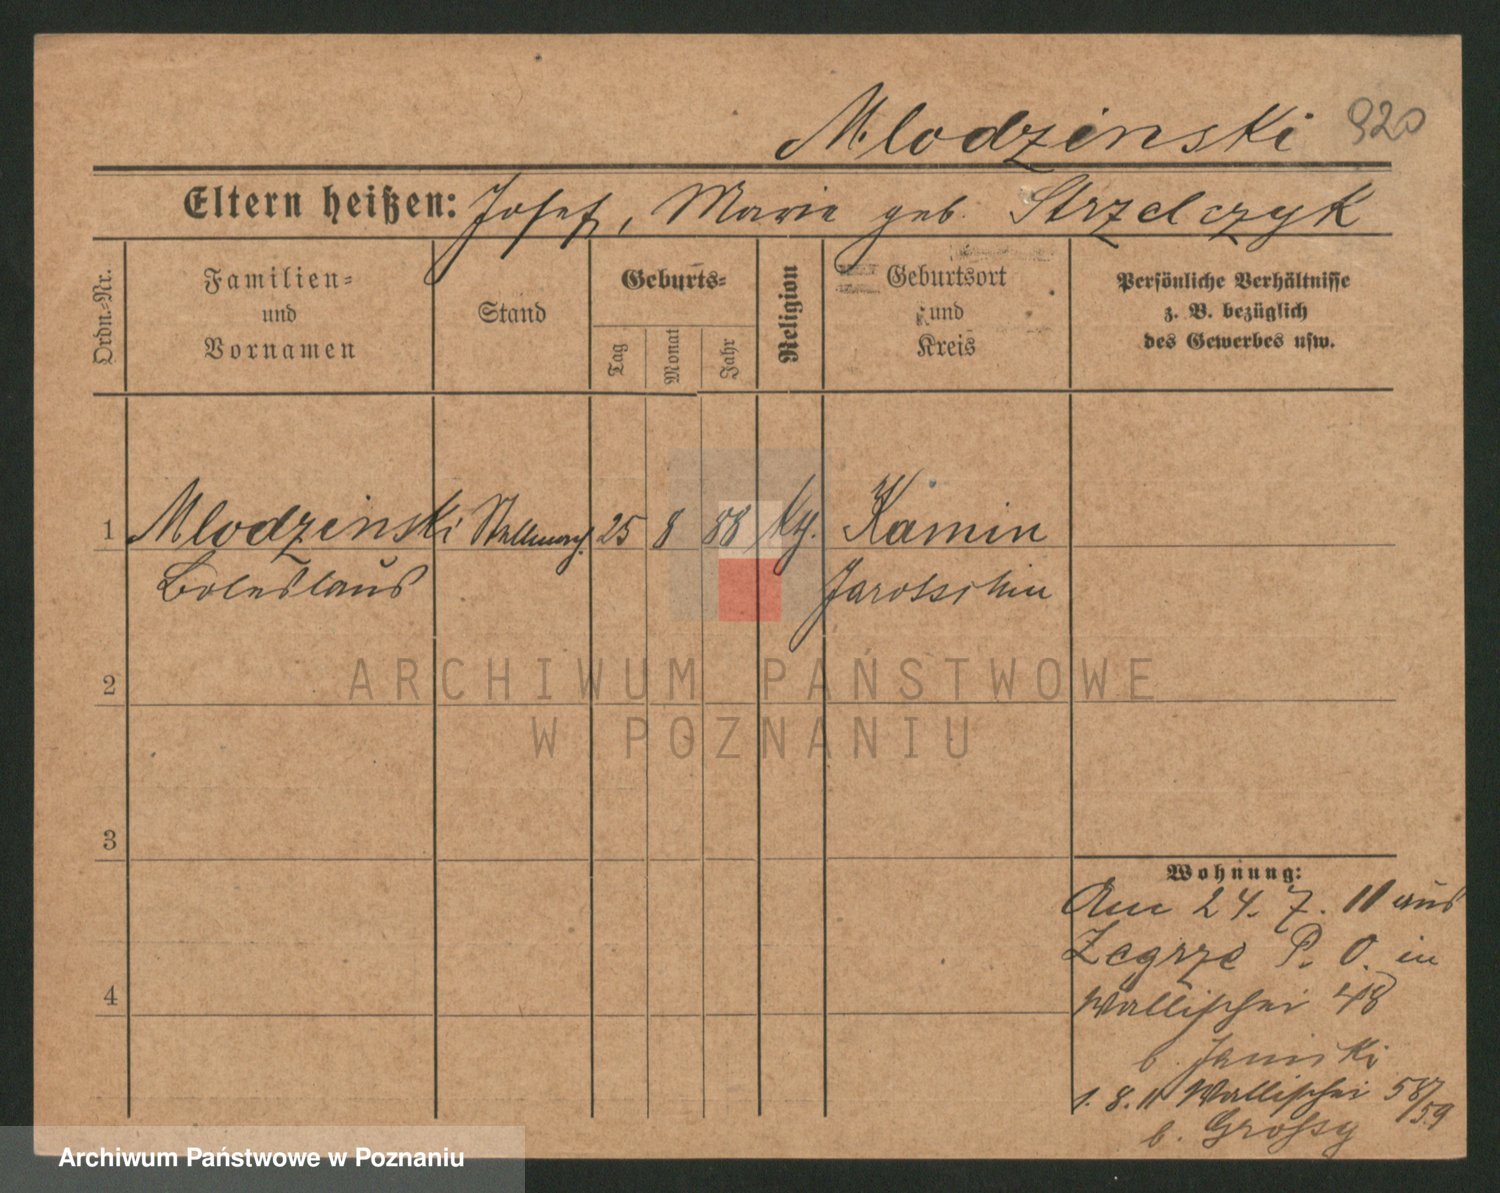 Mlodzinski 920
Eltern heißen: Josef, Marie geb. Strzelczyk
Ordn.-Nr.
Familien-
und
Vornamen
Stand
Geburts-
Tag
Monat
Jahr
Religion
Geburtsort
und
Kreis
Persönliche Verhältnisse
z. B. bezüglich
des Gewerbes usw.
1 Mlodzinski Stellmach. 25 8 88 kth. Kamin
Boleslaus Jarotschin
2
ARCHIWUM PAŃSTWOWE
W POZNANIU
3
4
Wohnung:
Am 24. 7. 11 aus
Zegrze P. O. in
Wallischei 48
b. Janiski
1. 8. 11 Wallischei 58/59
b. Grossy
Archiwum Państwowe w Poznaniu